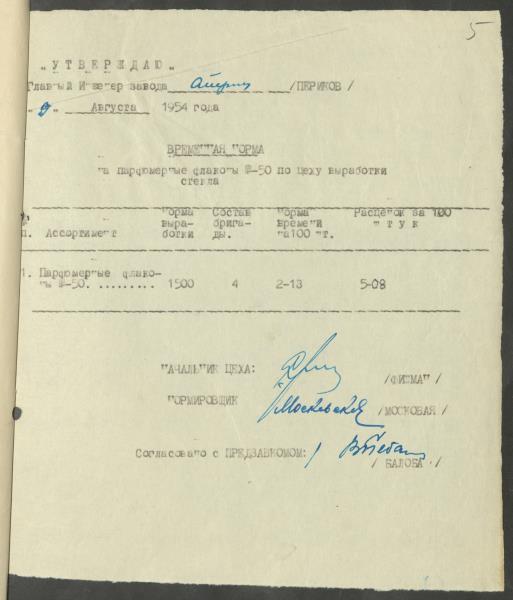 5
„ У Т В Е Р Ж Д А Ю „
Главный Инженер завода /ПЕРИКОВ /
„ 9 „ Августа 1954 года
ВРЕМЕННАЯ НОРМА
на парфюмерные флаконы Ф-50 по цеху выработки
стекла
Норма Состав Норма Расценок за 100
п. Ассортимент выра- брига- времени ш т у к
ботки ды. на 100 шт.
1. Парфюмерные флако-
ны Ф-50. ......... 1500 4 2-13 5-08
НАЧАЛЬНИК ЦЕХА: /ФИШМАН /
НОРМИРОВЩИК Московская /МОСКОВАЯ /
Согласовано с ПРЕДЗАВКОМОМ:
/ БАЛОБА /